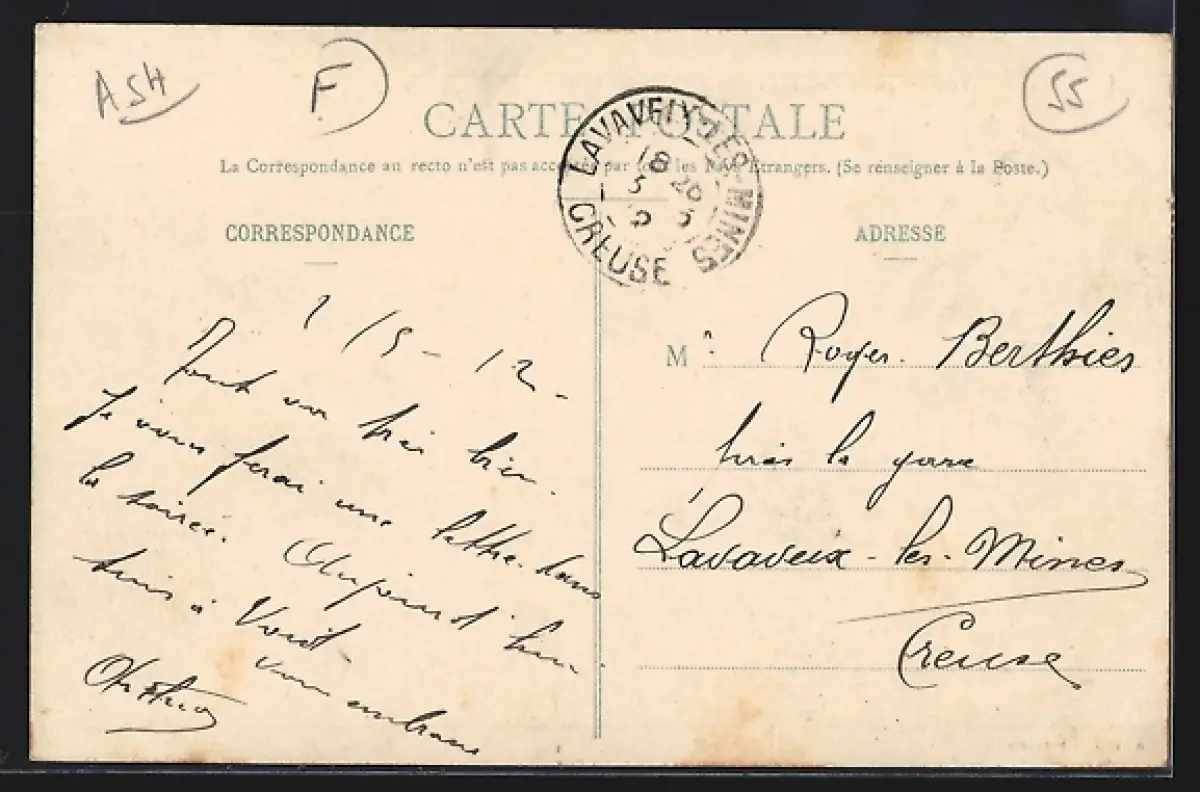 A54
F
55
CARTE POSTALE
La Correspondance au recto n'est pas acceptée par tous les Pays Etrangers. (Se renseigner à la Poste.)
LAVAVEIX-LES-MINES
18
CREUSE
CORRESPONDANCE
15-12-
Tout va très bien.
Je vous ferai une lettre dans
la soirée. Aujourd'hui
suis à
vous embrasse
ADRESSE
Mr Roger Berthier
près la gare
Lavaveix-les-Mines
Creuse